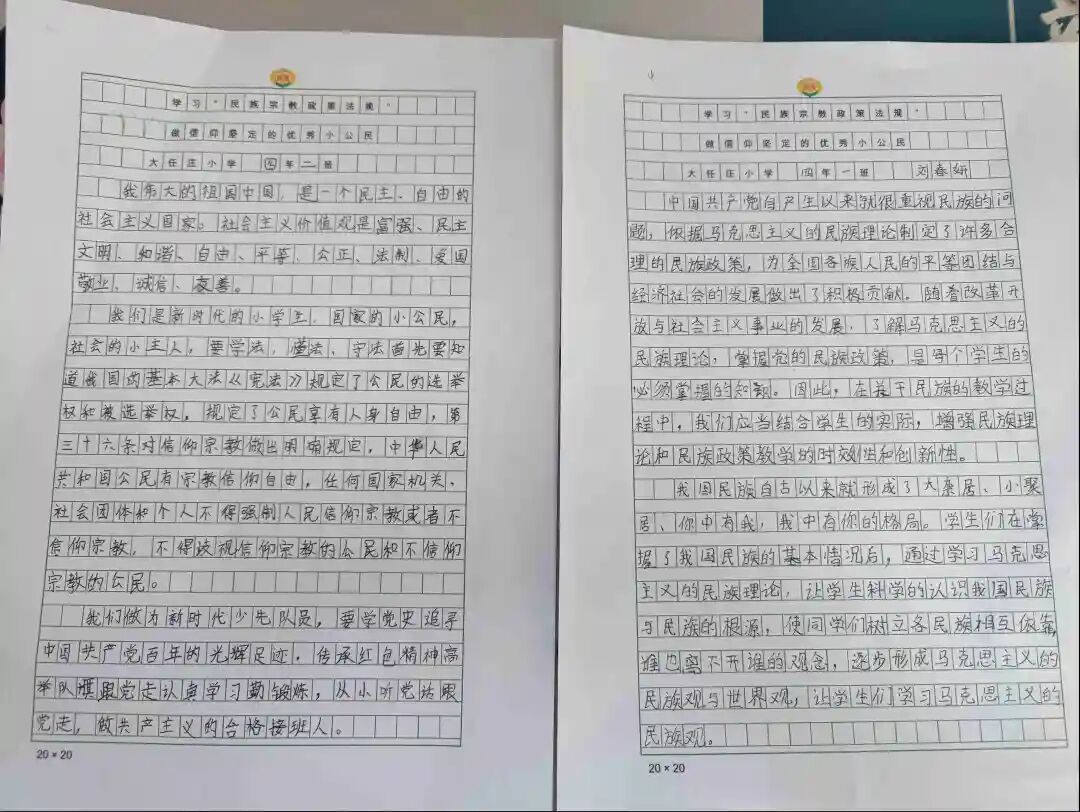 学习“民族宗教政策法规”
做信仰坚定的优秀小公民
大任庄小学 四年二班
我伟大的祖国中国，是一个民主、自由的
社会主义国家。社会主义价值观是富强、民主
文明、和谐、自由、平等、公正、法制、爱国
敬业、诚信、友善。
我们是新时代的小学生，国家的小公民，
社会的小主人，要学法，懂法、守法首先要知
道我国的基本大法《宪法》规定了公民的选举
权和被选举权，规定了公民享有人身自由，第
三十六条对信仰宗教做出明确规定，中华人民
共和国公民有宗教信仰自由，任何国家机关、
社会团体和个人不得强制人民信仰宗教或者不
信仰宗教，不得歧视信仰宗教的公民和不信仰
宗教的公民。
我们做为新时代少先队员，要学党史追寻
中国共产党百年的光辉足迹，传承红色精神高
举队旗跟党走认真学习勤锻炼，从小听党话跟
党走，做共产主义的合格接班人。
20×20
学习“民族宗教政策法规”
做信仰坚定的优秀小公民
大任庄小学 四年一班 刘春妍
中国共产党自产生以来就很重视民族的问
题，依据马克思主义的民族理论制定了许多合
理的民族政策，为全国各族人民的平等团结与
经济社会的发展做出了积极贡献。随着改革开
放与社会主义事业的发展，了解马克思主义的
民族理论，掌握党的民族政策，是每个学生的
必须掌握的知识。因此，在关于民族的教学过
程中，我们应当结合学生的实际，增强民族理
论和民族政策教学的时效性和创新性。
我国民族自古以来就形成了大杂居、小聚
居、你中有我，我中有你的格局。学生们在掌
握了我国民族的基本情况后，通过学习马克思
主义的民族理论，让学生科学的认识我国民族
与民族的根源，使同学们树立各民族相互依靠，
谁也离不开谁的观念，逐步形成马克思主义的
民族观与世界观，让学生们学习马克思主义的
民族观。
20×20